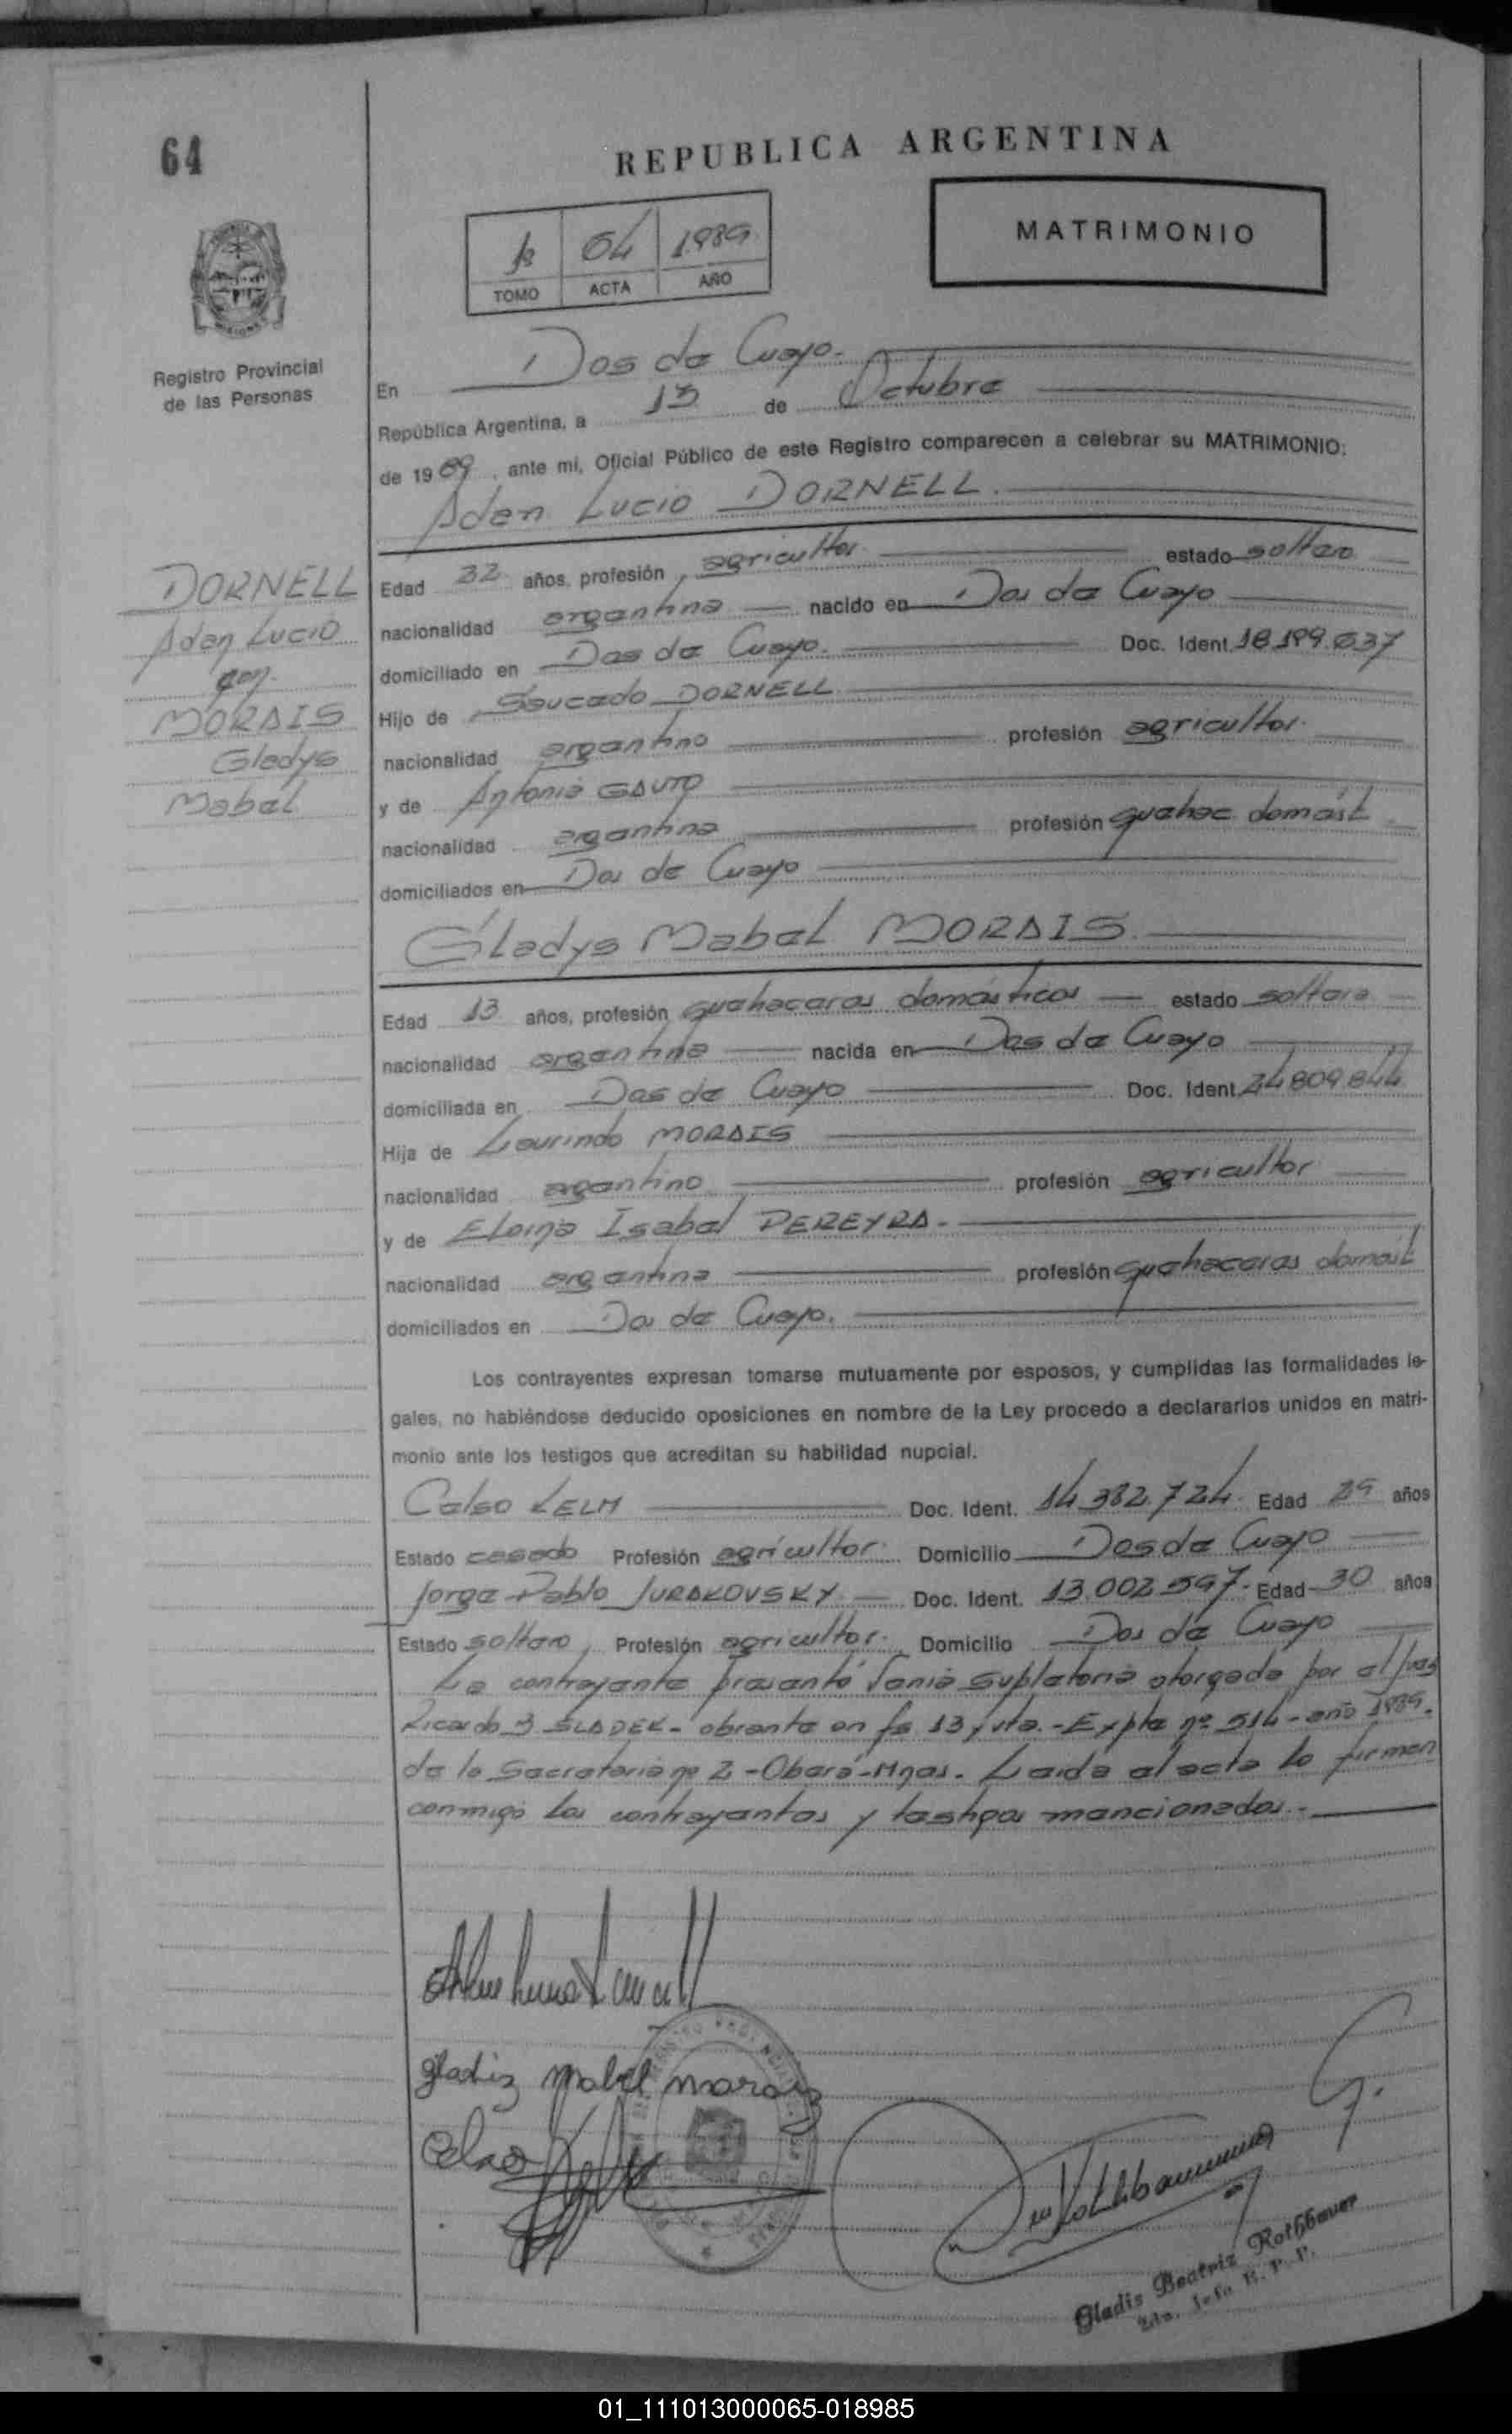 64
REPUBLICA ARGENTINA
MATRIMONIO
64 1989
TOMO ACTA AÑO
MISIONES
Registro Provincial
de las Personas
En Dos de Mayo.-
República Argentina, a 13 de Octubre
de 1989, ante mi, Oficial Público de este Registro comparecen a celebrar su MATRIMONIO:
Aden Lucio DORNELL.
DORNELL
Aden Lucio
con
MORAIS
Gladys
Mabel
Edad 32 años, profesión agricultor estado soltero
nacionalidad argentina nacido en Dos de Mayo
domiciliado en Dos de Mayo. Doc. Ident. 18.199.037
Hijo de DORNELL
nacionalidad argentino profesión agricultor.
y de Antonia GAUTO
nacionalidad argentina profesión quehac. domést.
domiciliados en Dos de Mayo
Gladys Mabel MORAIS.
Edad 13 años, profesión quehaceres domésticos estado soltera
nacionalidad argentina nacida en Dos de Mayo
domiciliada en Dos de Mayo Doc. Ident. 24.809.844
Hija de Laurindo MORAIS
nacionalidad argentino profesión agricultor
y de Isabel PEREYRA.-
nacionalidad argentina profesión quehaceres domést
domiciliados en Dos de Mayo.
Los contrayentes expresan tomarse mutuamente por esposos, y cumplidas las formalidades le-
gales, no habiéndose deducido oposiciones en nombre de la Ley procedo a declararlos unidos en matri-
monio ante los testigos que acreditan su habilidad nupcial.
Celso KELM Doc. Ident. 14.382.724. Edad 29 años
Estado casado Profesión agricultor. Domicilio Dos de Mayo
Jorge Pablo JURAKOVSKY Doc. Ident. 13.002.597. Edad 30 años
Estado soltero, Profesión agricultor. Domicilio Dos de Mayo
La contrayente presentó Venia Supletoria otorgada por el Juez
Ricardo J. SLADEK- obrante en fs 13 y vta.-Expte nº 514-año 1989.
de la Secretaria nº 2-Oberá-Mnes. Leida el acta la firman
conmigo los contrayentes y testigos mencionados.-
gladiz mabel moraiz
Celso
Gladis Beatriz Rothbauer
R. P. P.
01_111013000065-018985